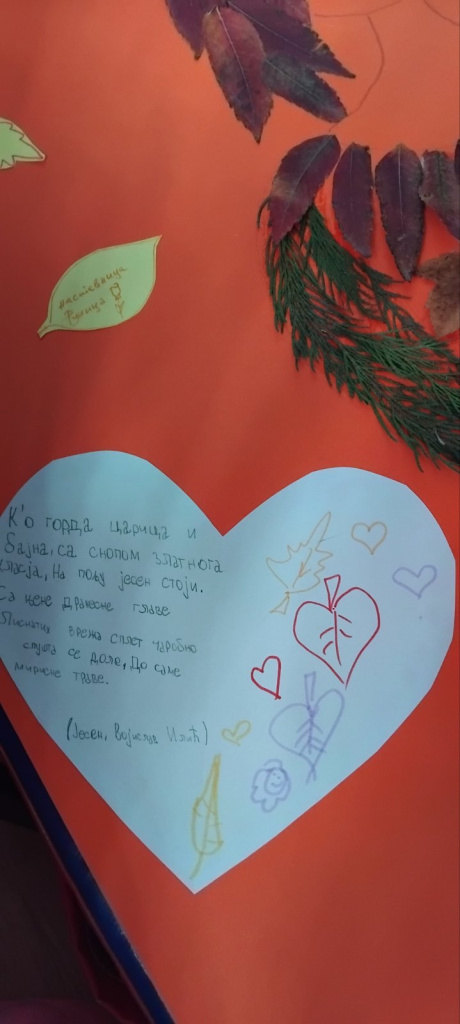 наставница
Ружица
К'о горда царица и
бајна, са снопом златнога
класја, На пољу јесен стоји.
Са њене дражесне главе
Лиснатих врежа сплет чаробно
спушта се доле, До саме
мирисне траве.
(Јесен, Војислав Илић)